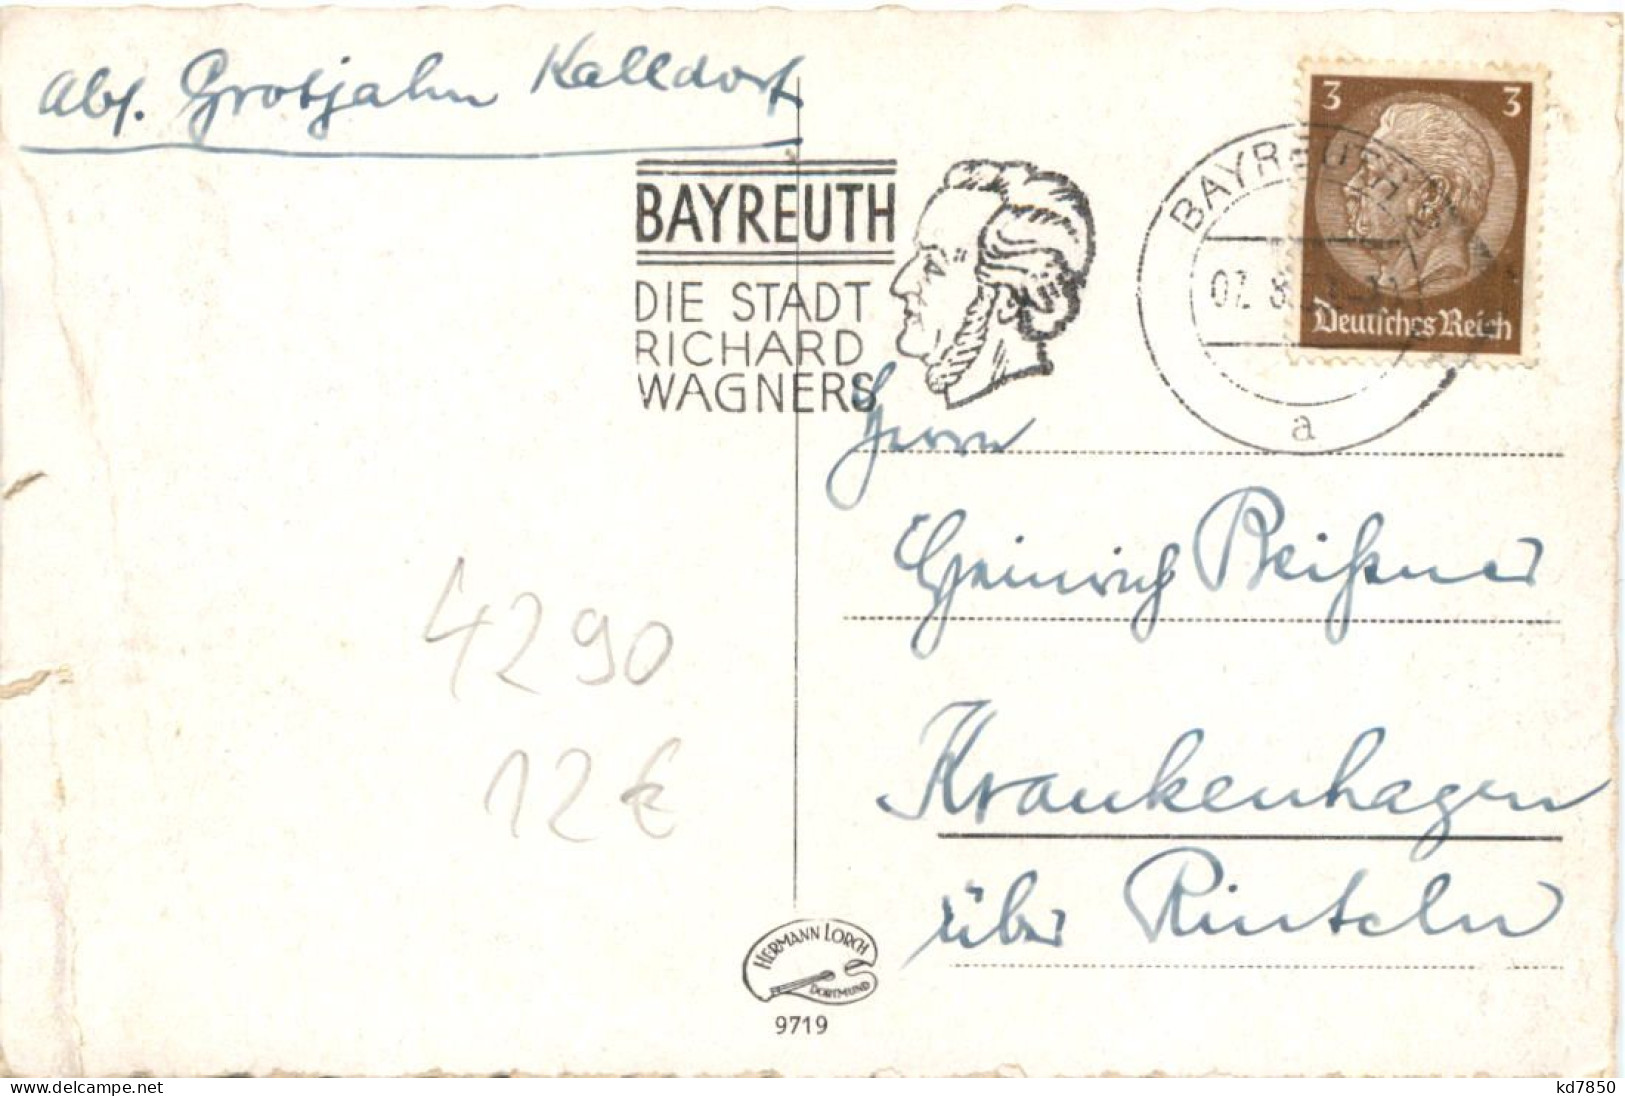 Abs. Grotjahn Kalldorf
3 3
Deutsches Reich
BAYREUTH
a
BAYREUTH
DIE STADT
RICHARD
WAGNERS
Herrn
Heinrich Beißner
Krankenhagen
über Rinteln
4290
12 €
HERMANN LORCH
DORTMUND
9719
www.delcampe.net
kd7850